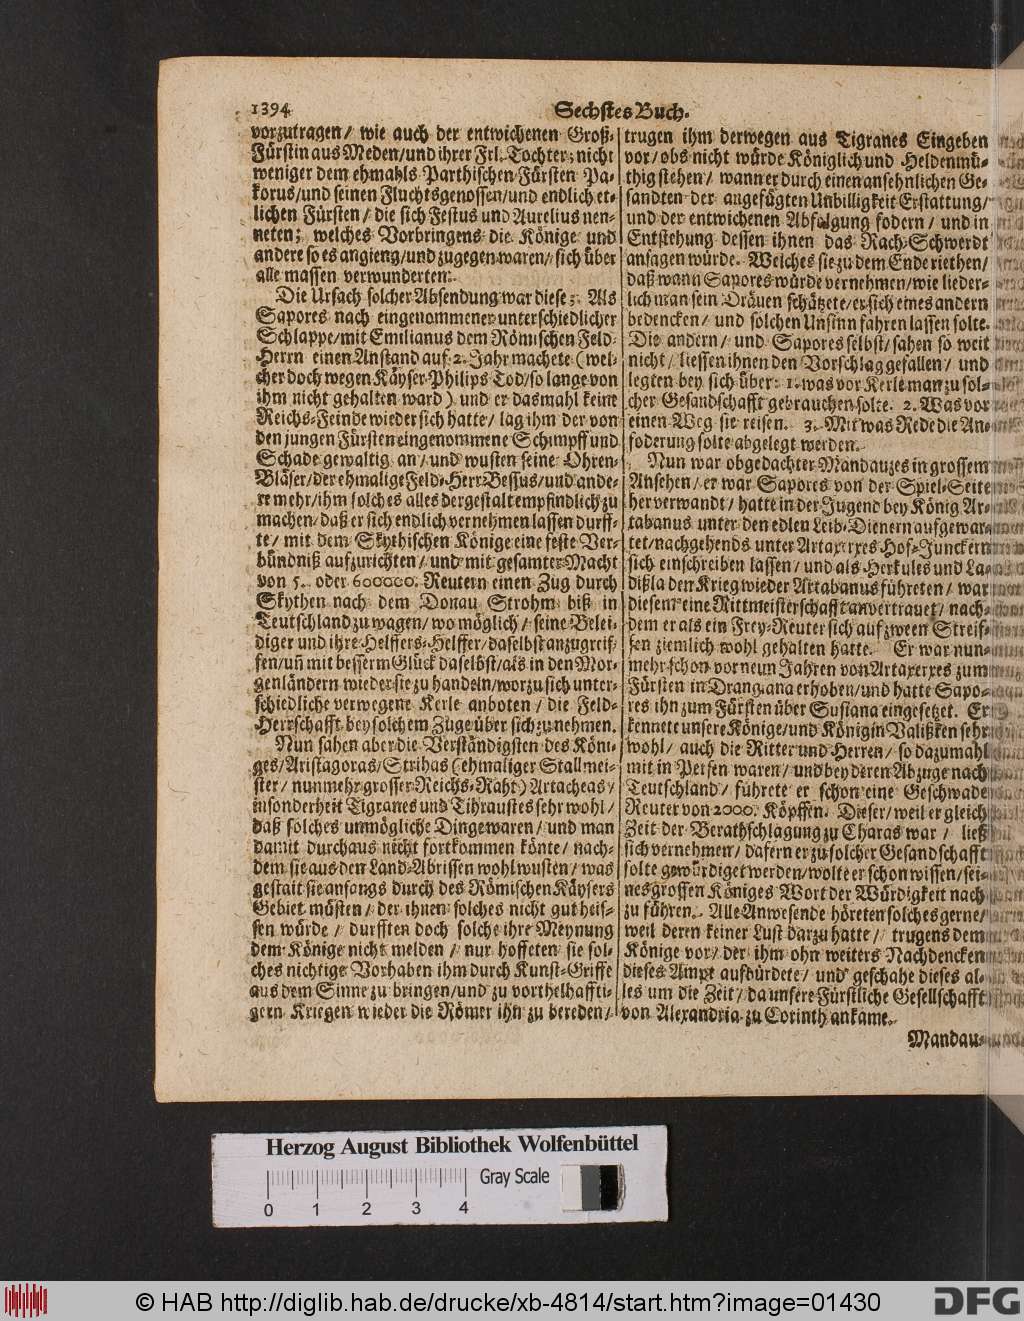 1394
Sechstes Buch.
vorzutragen/ wie auch der entwichenen Groß-
Fürstin aus Meden/und ihrer Frl. Tochter; nicht
weniger dem ehmahls Parthischen Fürsten Pa-
korus/und seinen Fluchtsgenossen/und endlich et-
lichen Fürsten/ die sich Festus und Aurelius nen-
neten; welches Vorbringens die Könige und
andere so es angieng/und zugegen waren/ sich über
alle massen verwunderten.
Die Ursach solcher Absendung war diese; Als
Sapores nach eingenommener unterschiedlicher
Schlappe/mit Emilianus dem Römischen Feld-
Herrn einen Anstand auf 2. Jahr machete (wel-
cher doch wegen Käyser Philips Tod/so lange von
ihm nicht gehalten ward) und er dasmahl keine
Reichs-Feinde wieder sich hatte/ lag ihm der von
den jungen Fürsten eingenommene Schimpff und
Schade gewaltig an/ und wusten seine Ohren-
Bläser/der ehmalige Feld-Herr Bessus/und ande-
re mehr/ihm solches alles dergestalt empfindlich zu
machen/daß er sich endlich vernehmen lassen durff-
te/ mit dem Skythischen Könige eine feste Ver-
bündniß aufzurichten/ und mit gesamter Macht
von 5. oder 600000. Reutern einen Zug durch
Skythen nach dem Donau Strohm biß in
Teutschland zu wagen/ wo möglich/ seine Belei-
diger und ihre Helffers-Helffer/daselbst anzugreif-
fen/uñ mit besserm Glück daselbst/als in den Mor-
genländern wieder sie zu handeln/worzu sich unter-
schiedliche verwegene Kerle anboten/ die Feld-
Herrschafft bey solchem Zuge über sich zu nehmen.
Nun sahen aber die Verständigsten des Köni-
ges/Aristagoras/Stribas (ehmaliger Stallmei-
ster/ nunmehr grosser Reichs-Raht) Artacheas/
insonderheit Tigranes und Tihraustes sehr wohl/
daß solches unmögliche Dinge waren/ und man
damit durchaus nicht fortkommen könte/ nach-
dem sie aus den Land-Abrissen wohl wusten/ was
gestalt sie anfangs durch des Römischen Käysers
Gebiet müsten/ der ihnen solches nicht gut heis-
sen würde/ durfften doch solche ihre Meynung
dem Könige nicht melden/ nur hoffeten sie sol-
ches nichtige Vorhaben ihm durch Kunst-Griffe
aus dem Sinne zu bringen/und zu vorthelhaffti-
gern Kriegen wieder die Römer ihn zu bereden/
trugen ihm derwegen aus Tigranes Eingeben
vor/ obs nicht würde Königlich und Heldenmü-
thig stehen/ wann er durch einen ansehnlichen Ge-
sandten der angefügten Unbilligkeit Erstattung/
und der entwichenen Abfolgung fodern/ und in
Entstehung dessen ihnen das Rach-Schwerdt
ansagen würde. Welches sie zu dem Ende riethen/
daß wann Sapores würde vernehmen/wie lieder-
lich man sein Dräuen schätzete/er sich eines andern
bedencken/ und solchen Unsinn fahren lassen solte.
Die andern/ und Sapores selbst/sahen so weit
nicht/ liessen ihnen den Vorschlag gefallen/ und
legten bey sich über: 1. was vor Kerle man zu sol-
cher Gesandschafft gebrauchen solte. 2. Was vor
einen Weg sie reisen. 3. Mit was Rede die An-
foderung solte abgelegt werden.
Nun war obgedachter Mandauzes in grossem
Ansehen/ er war Sapores von der Spiel-Seite
her verwandt/ hatte in der Jugend bey König Ar-
tabanus unter den edlen Leib-Dienern aufgewar-
tet/nachgehends unter Artaxerxes Hof-Junckern
sich einschreiben lassen/ und als Herkules und La-
dißla den Krieg wieder Artabanus führeten/ war
diesem eine Rittmeisterschafft anvertrauet/ nach-
dem er als ein Frey-Reuter sich auf zween Streif-
fen ziemlich wohl gehalten hatte. Er war nun-
mehr schon vor neun Jahren von Artaxerxes zum
Fürsten in Drangiana erhoben/und hatte Sapo-
res ihn zum Fürsten über Susiana eingesetzt. Er
kennete unsere Könige/und Königin Valißken sehr
wohl/ auch die Ritter und Herren/ so dazumahl
mit in Persen waren/ und bey deren Abzuge nach
Teutschland/ führete er schon eine Geschwade
Reuter von 2000. Köpffen. Dieser/ weil er gleich
Zeit der Berathschlagung zu Charas war/ ließ
sich vernehmen/ dafern er zu solcher Gesandschafft
solte gewürdiget werden/ wolte er schon wissen/ sei-
nes grossen Königes Wort der Würdigkeit nach
zu führen. Alle Anwesende höreten solches gerne/
weil deren keiner Lust darzu hatte/ trugens dem
Könige vor/ der ihm ohn weiters Nachdencken
dieses Ampt aufbürdete/ und geschahe dieses al-
les um die Zeit/ da unsere Fürstliche Gesellschafft
von Alexandria zu Corinth ankame.
Mandau-
Herzog August Bibliothek Wolfenbüttel
Gray Scale
0 1 2 3 4
© HAB http://diglib.hab.de/drucke/xb-4814/start.htm?image=01430
DFG